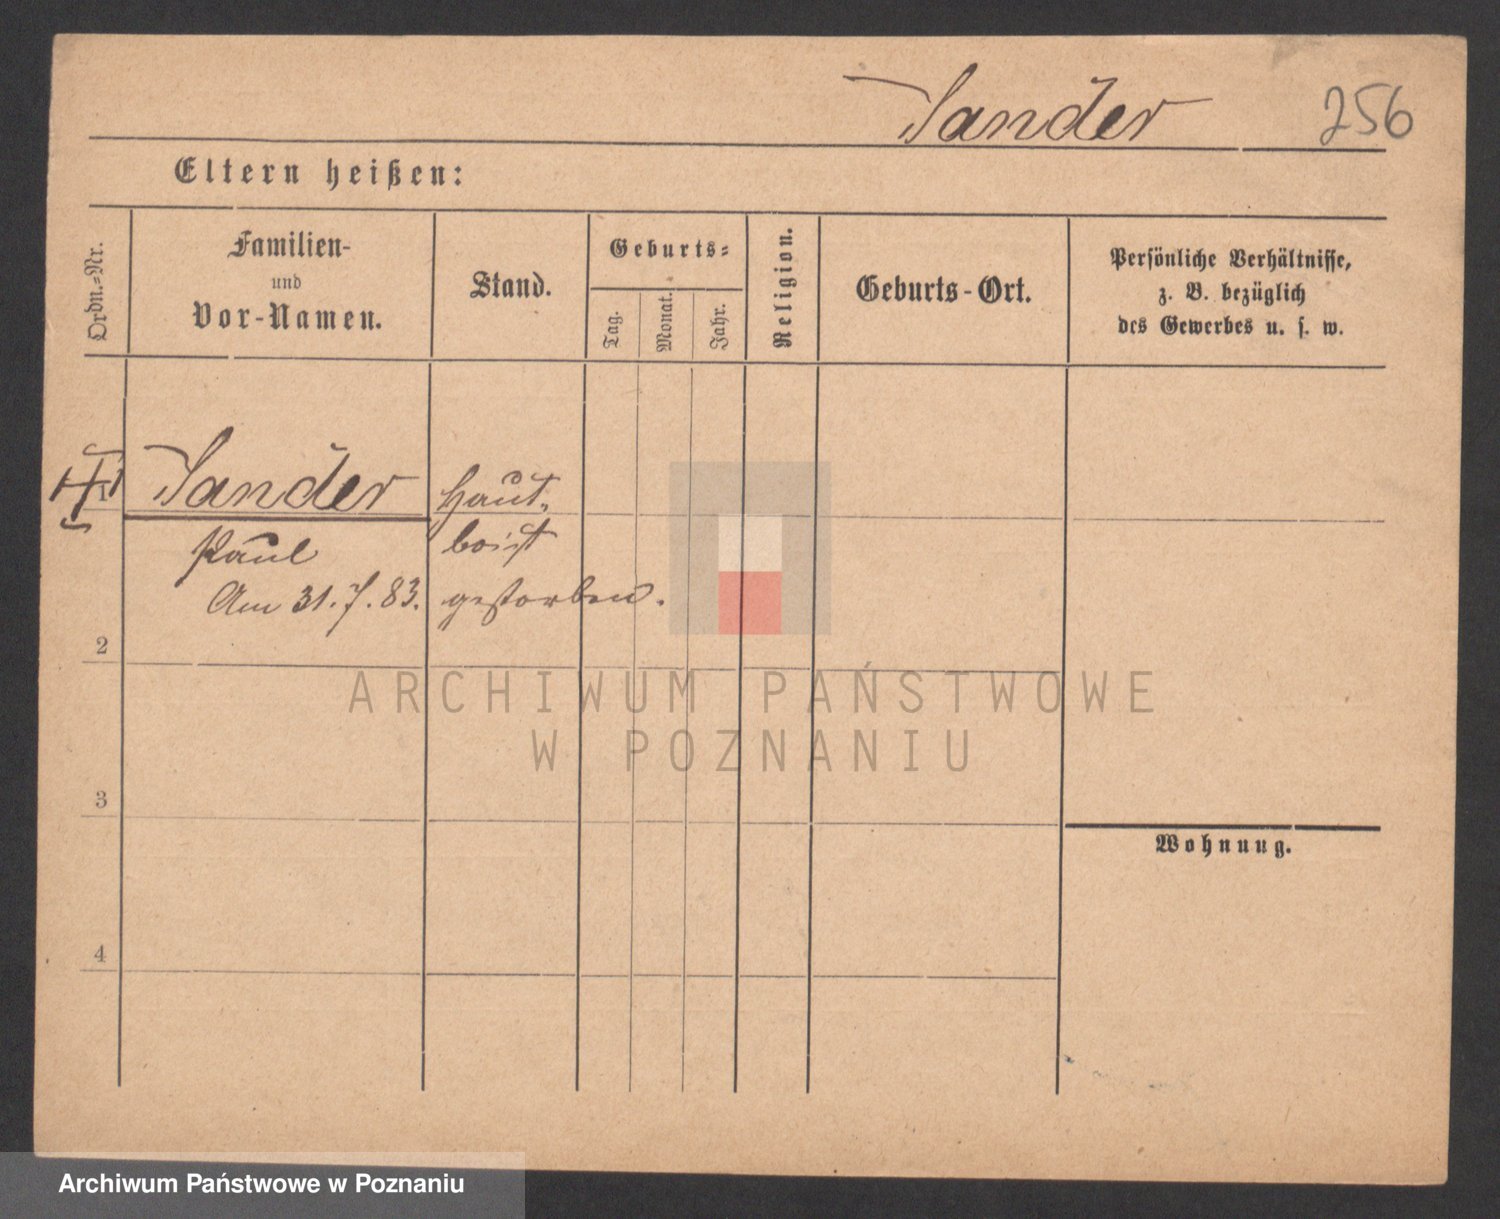 Sander 256
Eltern heißen:
Ordn.=Nr.
Familien-
und
Vor-Namen.
Stand.
Geburts=
Tag.
Monat.
Jahr.
Religion.
Geburts-Ort.
Persönliche Verhältnisse,
z. B. bezüglich
des Gewerbes u. s. w.
1 Sander Haut-
Paul boist
Am 31.7.83. gestorben.
2
3
4
Wohnung.
ARCHIWUM PAŃSTWOWE
W POZNANIU
Archiwum Państwowe w Poznaniu